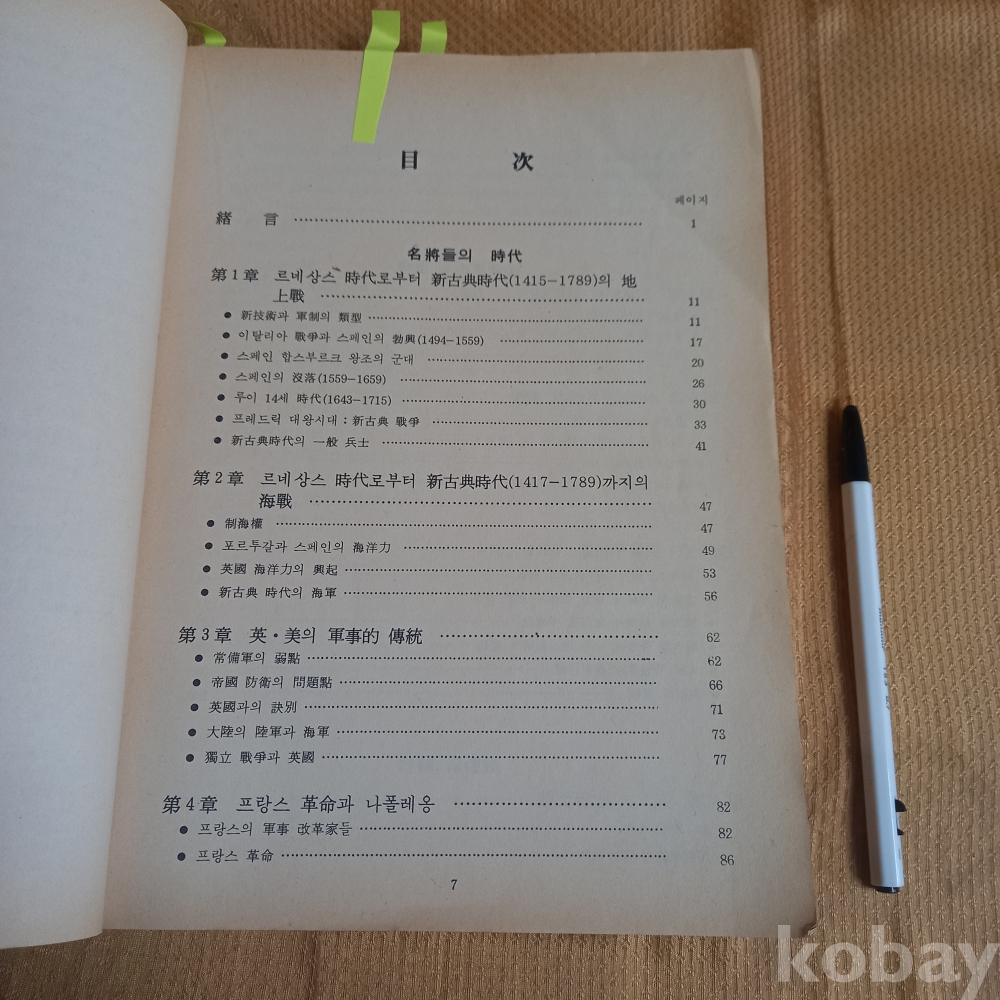 目 次
페이지
緖 言 1
名將들의 時代
第1章 르네상스 時代로부터 新古典時代(1415-1789)의 地
上戰 11
● 新技術과 軍制의 類型 11
● 이탈리아 戰爭과 스페인의 勃興(1494-1559) 17
● 스페인 합스부르크 왕조의 군대 20
● 스페인의 沒落(1559-1659) 26
● 루이 14세 時代(1643-1715) 30
● 프레드릭 대왕시대 : 新古典 戰爭 33
● 新古典時代의 一般 兵士 41
第2章 르네상스 時代로부터 新古典時代(1417-1789)까지의
海戰 47
● 制海權 47
● 포르투갈과 스페인의 海洋力 49
● 英國 海洋力의 興起 53
● 新古典 時代의 海軍 56
第3章 英·美의 軍事的 傳統 62
● 常備軍의 弱點 62
● 帝國 防衛의 問題點 66
● 英國과의 訣別 71
● 大陸의 陸軍과 海軍 73
● 獨立 戰爭과 英國 77
第4章 프랑스 革命과 나폴레옹 82
● 프랑스의 軍事 改革家들 82
● 프랑스 革命 86
7
kobay